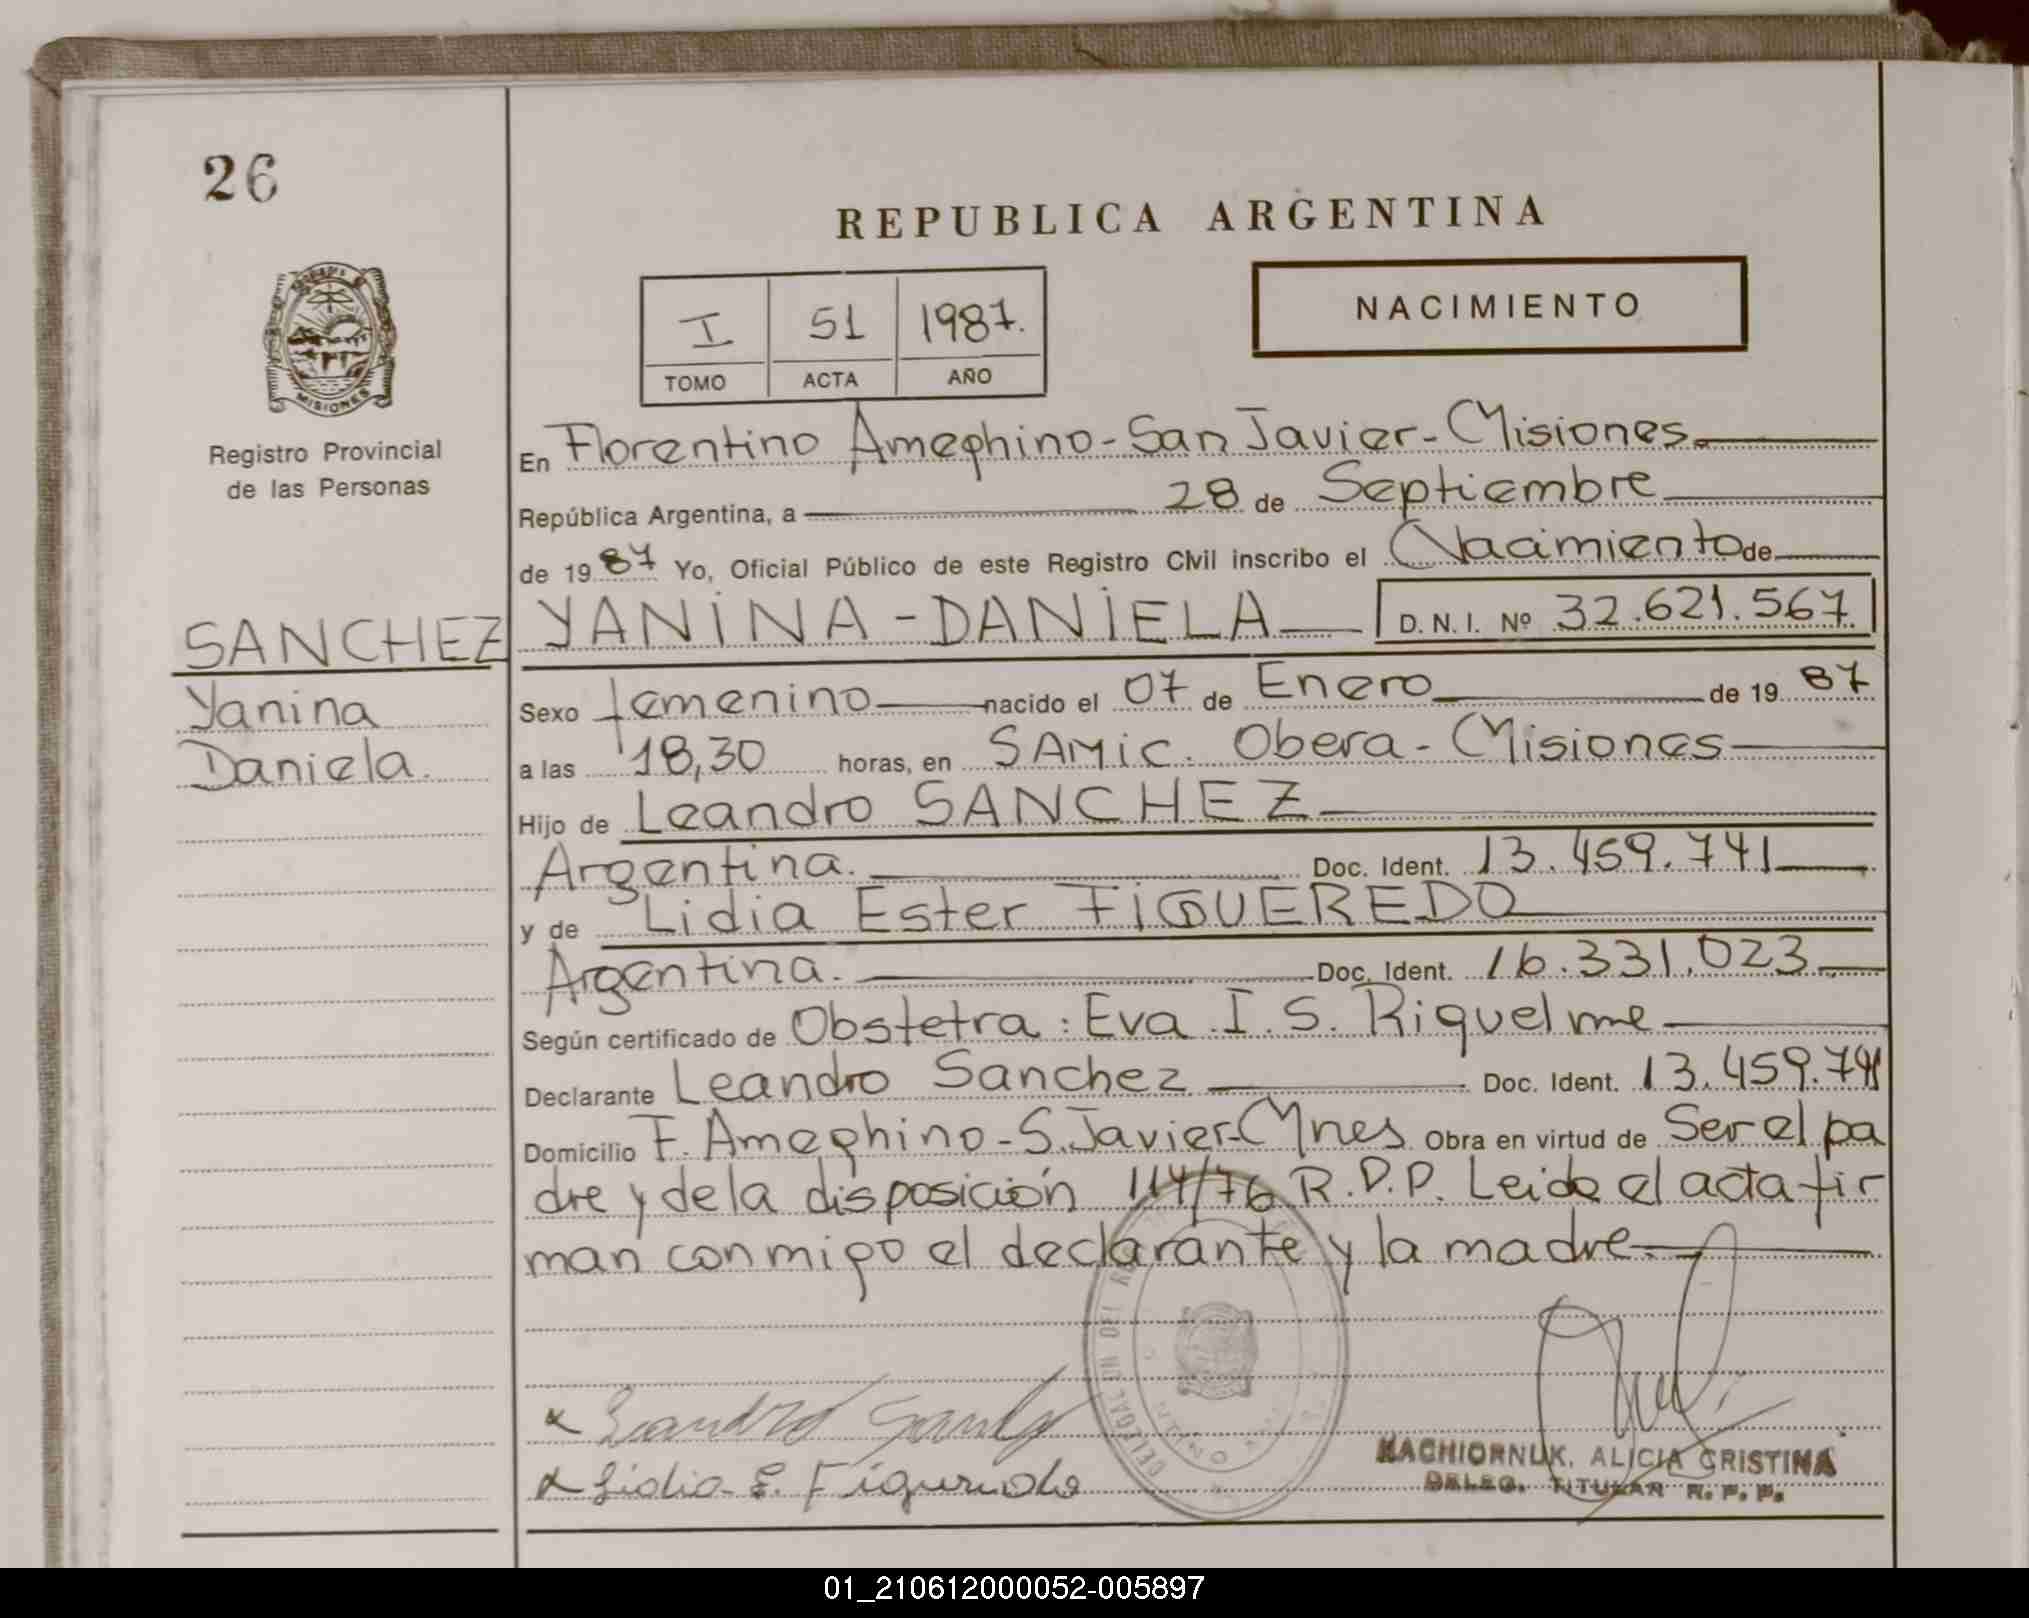 26
REPUBLICA ARGENTINA
I 51 1987.
TOMO ACTA AÑO
NACIMIENTO
MISIONES
Registro Provincial
de las Personas
En Florentino Ameghino - San Javier - Misiones.
República Argentina, a 28 de Septiembre
de 19 87 Yo, Oficial Público de este Registro Civil inscribo el Nacimiento de
SANCHEZ YANINA - DANIELA D. N. I. Nº 32.621.567
Yanina
Daniela.
Sexo femenino nacido el 07 de Enero de 19 87
a las 18,30 horas, en SAMIC. Obera - Misiones
Hijo de Leandro SANCHEZ
Argentina. Doc. Ident. 13.459.741
y de Lidia Ester FIGUEREDO
Argentina. Doc. Ident. 16.331.023
Según certificado de Obstetra: Eva I. S. Riquelme
Declarante Leandro Sanchez Doc. Ident. 13.459.741
Domicilio F. Ameghino - S. Javier - Mnes Obra en virtud de Ser el pa
dre y de la disposición 114/76 R.P.P. Leida el acta fir
man conmigo el declarante y la madre.
Leandro Sanchez
Lidia E. Figueredo
KACHIORNUK, ALICIA CRISTINA
DELEG. TITULAR R. P. P.
01_210612000052-005897